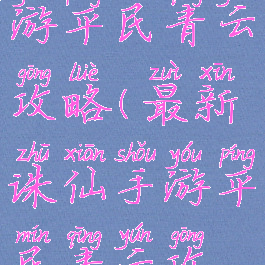 游平民青云
gōng lüè zuì xīn
攻略(最新
zhū xiān shǒu yóu píng
诛仙手游平
mín qīng yún gōng
民青云攻